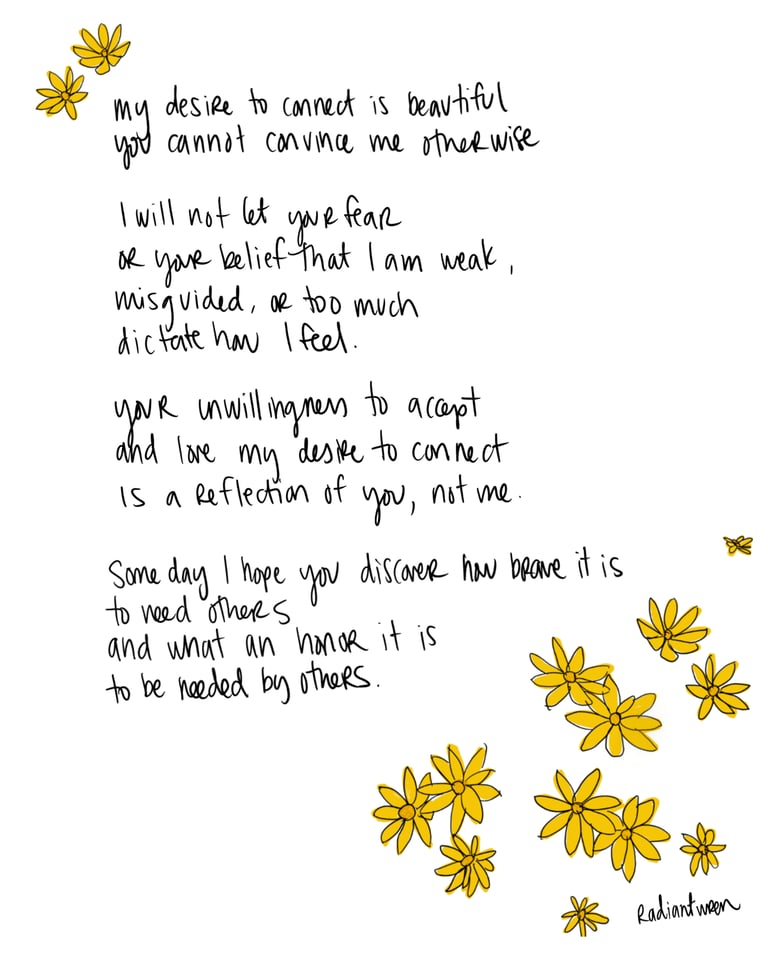 my desire to connect is beautiful
you cannot convince me otherwise
I will not let your fear
or your belief that I am weak,
misguided, or too much
dictate how I feel.
your unwillingness to accept
and love my desire to connect
is a reflection of you, not me.
Some day I hope you discover how brave it is
to need others
and what an honor it is
to be needed by others.
Radiantwren